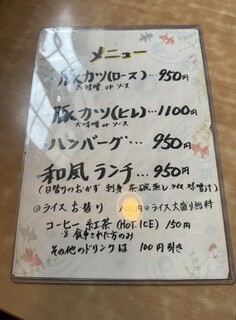 メニュー
豚カツ(ロース)…950円
大味噌 or ソース
豚カツ(ヒレ)…1100円
大味噌 or ソース
ハンバーグ…950円
和風ランチ…950円
(日替りのおかず 刺身 茶碗蒸し ライス 味噌汁)
◎ライスお替り 円 ◎ライス大盛り無料
コーヒー 紅茶(HOT.ICE) 150円
※食事された方のみ
その他のドリンクは 100円引き